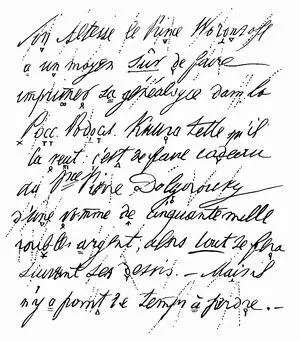 Son Altesse le Prince Woronzoff
a un moyen sûr de faire
imprimer sa généalogie dans la
Росс. Родосл. Книга telle qu'il
la veut: c'est de faire cadeau
au Pce Pierre Dolgorouky
d'une somme de cinquante mille
roubles argent, alors tout se fera
suivant ses désirs. — Mais il
n'y a point de temps à perdre. —